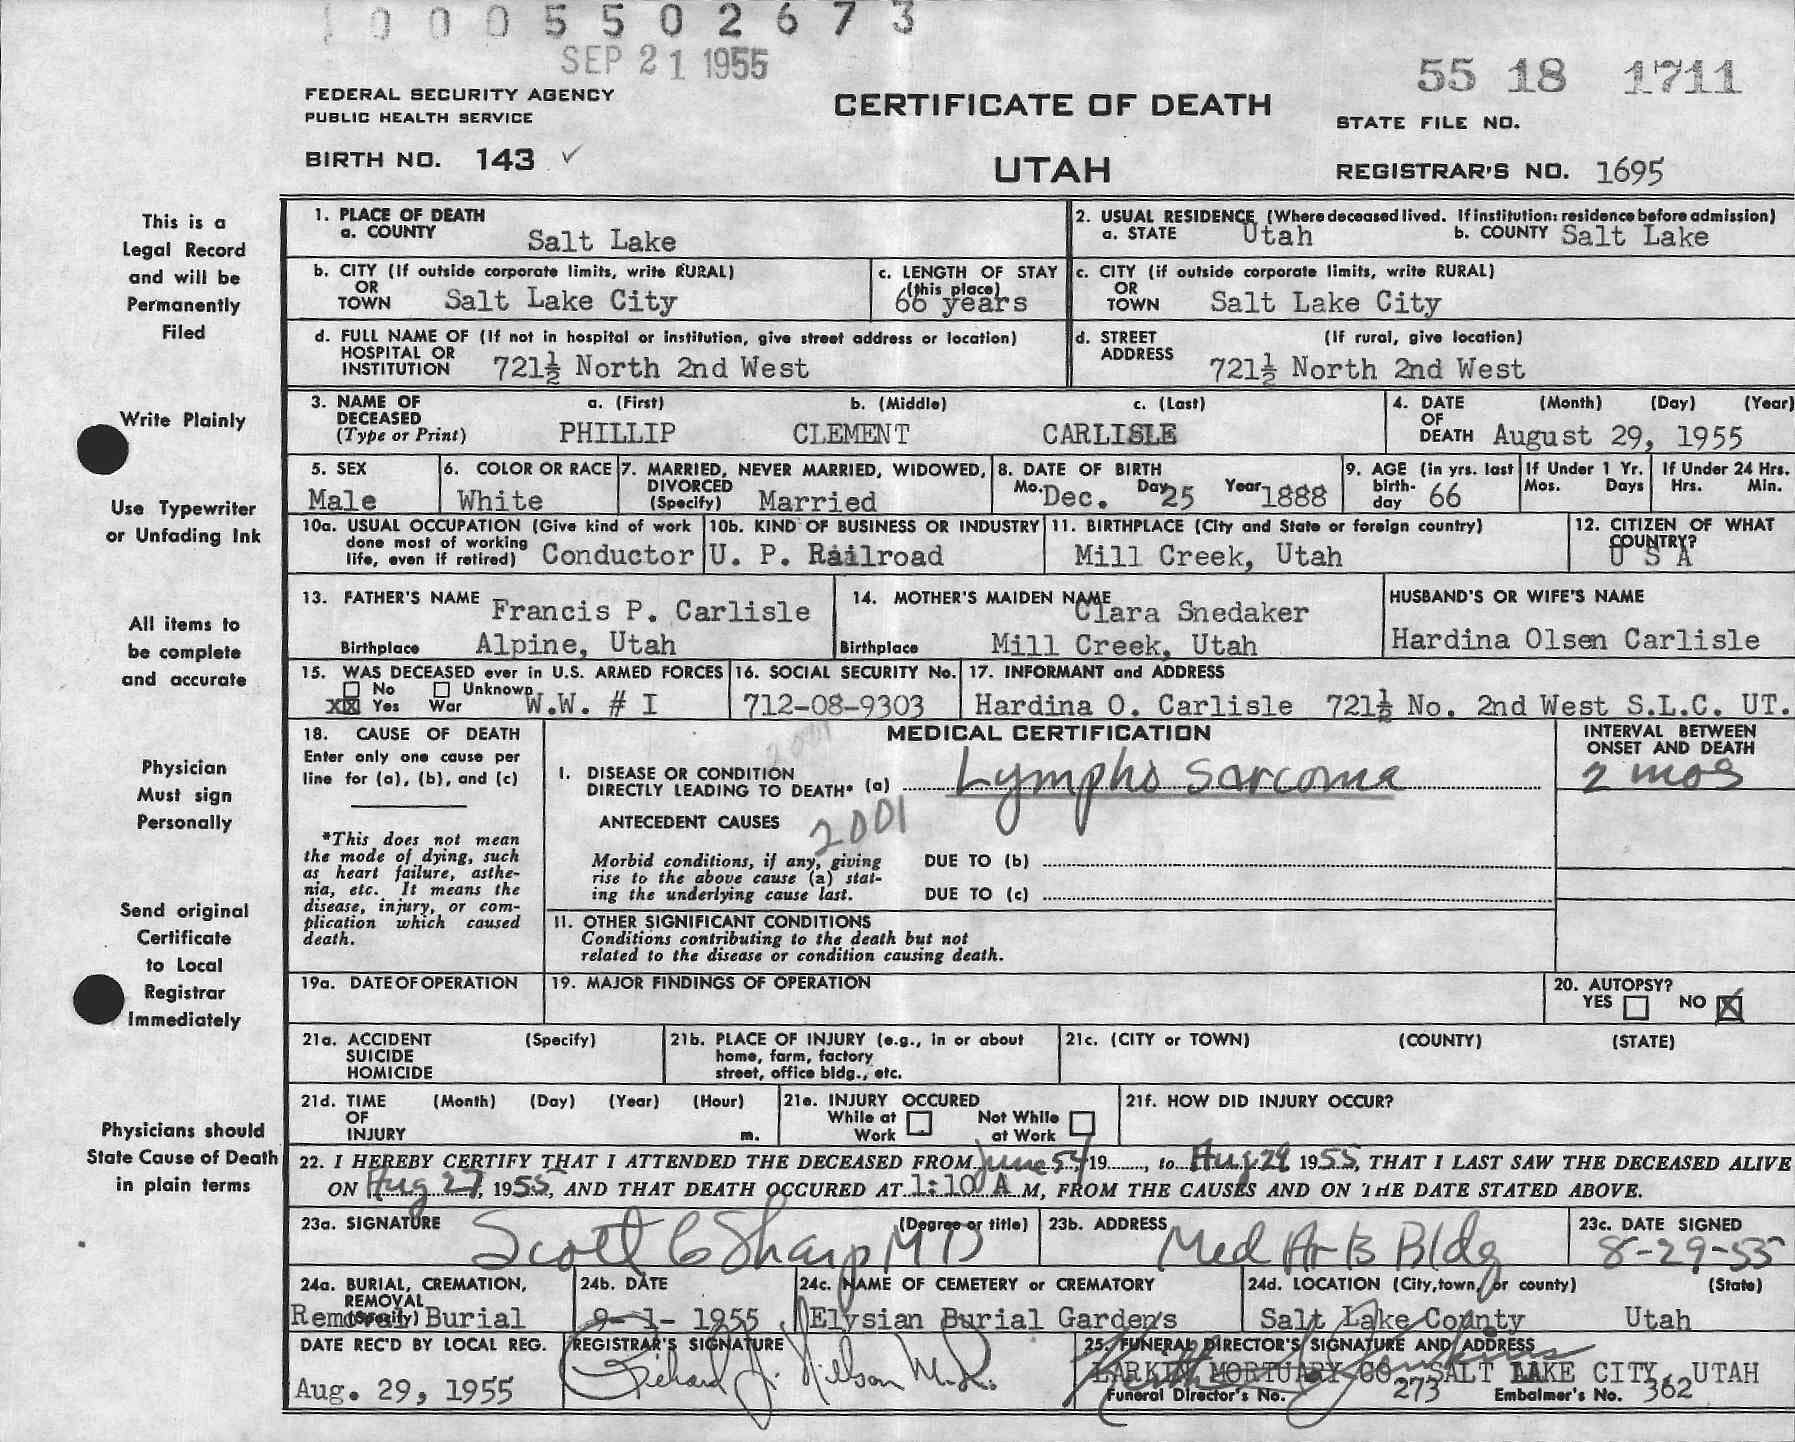 0005502673
SEP 21 1955
55 18 1711
FEDERAL SECURITY AGENCY
PUBLIC HEALTH SERVICE
CERTIFICATE OF DEATH
STATE FILE NO.
BIRTH NO. 143 ✓
UTAH
REGISTRAR'S NO. 1695
This is a
Legal Record
and will be
Permanently
Filed
Write Plainly
Use Typewriter
or Unfading Ink
All items to
be complete
and accurate
Physician
Must sign
Personally
Send original
Certificate
to Local
Registrar
Immediately
Physicians should
State Cause of Death
in plain terms
1. PLACE OF DEATH
a. COUNTY Salt Lake
2. USUAL RESIDENCE (Where deceased lived. If institution: residence before admission)
a. STATE Utah b. COUNTY Salt Lake
b. CITY (If outside corporate limits, write RURAL)
OR
TOWN Salt Lake City
c. LENGTH OF STAY
(this place)
66 years
c. CITY (if outside corporate limits, write RURAL)
OR
TOWN Salt Lake City
d. FULL NAME OF (If not in hospital or institution, give street address or location)
HOSPITAL OR
INSTITUTION 721½ North 2nd West
d. STREET (If rural, give location)
ADDRESS 721½ North 2nd West
3. NAME OF a. (First) b. (Middle) c. (Last)
DECEASED
(Type or Print) PHILLIP CLEMENT CARLISLE
4. DATE (Month) (Day) (Year)
OF
DEATH August 29, 1955
5. SEX
Male
6. COLOR OR RACE
White
7. MARRIED, NEVER MARRIED, WIDOWED,
DIVORCED
(Specify) Married
8. DATE OF BIRTH
Mo. Dec. Day 25 Year 1888
9. AGE (in yrs. last
birth-
day 66
If Under 1 Yr.
Mos. Days
If Under 24 Hrs.
Hrs. Min.
10a. USUAL OCCUPATION (Give kind of work
done most of working
life, even if retired) Conductor
10b. KIND OF BUSINESS OR INDUSTRY
U. P. Railroad
11. BIRTHPLACE (City and State or foreign country)
Mill Creek, Utah
12. CITIZEN OF WHAT
COUNTRY?
U S A
13. FATHER'S NAME Francis P. Carlisle
Birthplace Alpine, Utah
14. MOTHER'S MAIDEN NAME Clara Snedaker
Birthplace Mill Creek, Utah
HUSBAND'S OR WIFE'S NAME
Hardina Olsen Carlisle
15. WAS DECEASED ever in U.S. ARMED FORCES
No Unknown
XX Yes War W.W. # I
16. SOCIAL SECURITY No.
712-08-9303
17. INFORMANT and ADDRESS
Hardina O. Carlisle 721½ No. 2nd West S.L.C. UT.
18. CAUSE OF DEATH
Enter only one cause per
line for (a), (b), and (c)
*This does not mean
the mode of dying, such
as heart failure, asthe-
nia, etc. It means the
disease, injury, or com-
plication which caused
death.
MEDICAL CERTIFICATION
2001
I. DISEASE OR CONDITION
DIRECTLY LEADING TO DEATH* (a) Lympho Sarcoma
INTERVAL BETWEEN
ONSET AND DEATH
2 mos
ANTECEDENT CAUSES
2001
Morbid conditions, if any, giving
rise to the above cause (a) stat-
ing the underlying cause last.
DUE TO (b)
DUE TO (c)
II. OTHER SIGNIFICANT CONDITIONS
Conditions contributing to the death but not
related to the disease or condition causing death.
19a. DATE OF OPERATION
19. MAJOR FINDINGS OF OPERATION
20. AUTOPSY?
YES NO X
21a. ACCIDENT (Specify)
SUICIDE
HOMICIDE
21b. PLACE OF INJURY (e.g., in or about
home, farm, factory
street, office bldg., etc.
21c. (CITY or TOWN) (COUNTY) (STATE)
21d. TIME (Month) (Day) (Year) (Hour)
OF
INJURY m.
21e. INJURY OCCURED
While at Not While
Work at Work
21f. HOW DID INJURY OCCUR?
22. I HEREBY CERTIFY THAT I ATTENDED THE DECEASED FROM June 54, 19......, to Aug 29 1955, THAT I LAST SAW THE DECEASED ALIVE
ON Aug 27, 1955, AND THAT DEATH OCCURED AT 1:10 A M, FROM THE CAUSES AND ON THE DATE STATED ABOVE.
23a. SIGNATURE (Degree or title)
Scott C Sharp MD
23b. ADDRESS
Med Arts Bldg
23c. DATE SIGNED
8-29-55
24a. BURIAL, CREMATION,
REMOVAL
(Specify)
Removal Burial
24b. DATE
9-1-1955
24c. NAME OF CEMETERY or CREMATORY
Elysian Burial Gardens
24d. LOCATION (City, town, or county) (State)
Salt Lake County Utah
DATE REC'D BY LOCAL REG.
Aug. 29, 1955
REGISTRAR'S SIGNATURE
Richard J. Nelson M.D.
25. FUNERAL DIRECTOR'S SIGNATURE AND ADDRESS
LARKIN MORTUARY CO. SALT LAKE CITY, UTAH
Funeral Director's No. 273 Embalmer's No. 362